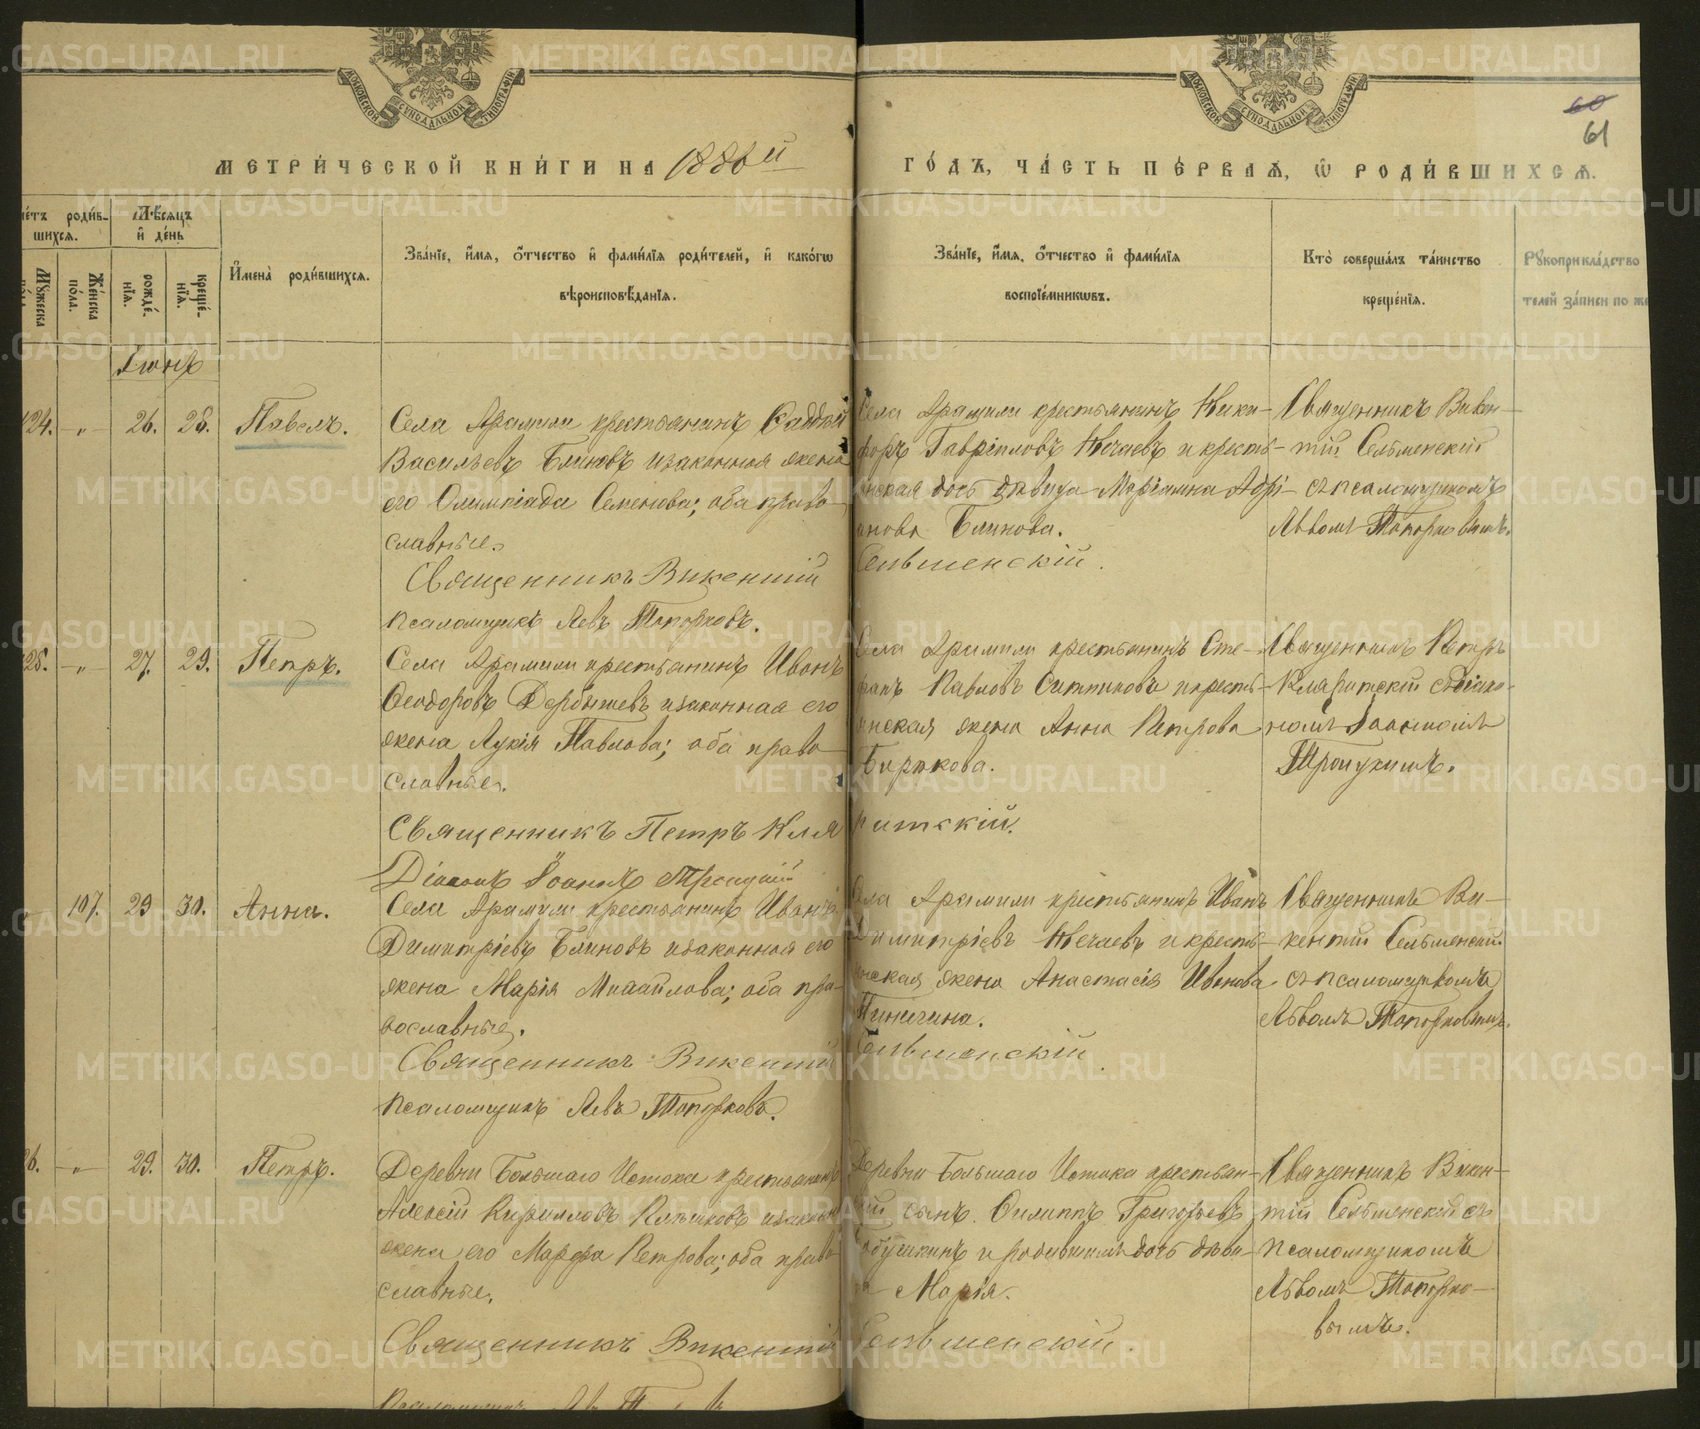 МЕТРИ́ЧЕСКОЙ КНИ́ГИ НА 1886й
ГО́ДЪ, ЧА́СТЬ ПЕ́РВАѦ, Ѡ РОДИ́ВШИХСѦ.
60
61
МОСКОВСКОЙ СѴНОДАЛЬНОЙ ТИПОГРАФІИ
МОСКОВСКОЙ СѴНОДАЛЬНОЙ ТИПОГРАФІИ
роди́в-
шихсѧ.
Мѣ́сѧцъ
и҆ де́нь
Мꙋ́жеска
Же́нска
по́ла.
рожде́-
нїѧ.
креще́-
нїѧ.
И҆мена̀ роди́вшихсѧ.
Зва́нїе, и҆́мѧ, ѻ҆́тчество и҆ фами́лїѧ роди́телей, и҆ како́гѡ
вѣроисповѣ́данїѧ.
Зва́нїе, и҆́мѧ, ѻ҆́тчество и҆ фами́лїѧ
воспрїе́мникѡвъ.
Кто̀ соверша́лъ та́инство
креще́нїѧ.
Рꙋкоприкла́дство
телей за́писи по же
Іюнь
124. -„- 26. 28. Павелъ.
Села Арамили крестьянинъ Фаддей
Васильевъ Блиновъ и законная жена
его Олимпіада Семенова; оба право-
славные.
Священникъ Викентій
псаломщикъ Левъ Топорковъ.
Села Арамили крестьянинъ Ники-
форъ Гавріиловъ Нечаевъ и кресть-
янская дочь дѣвица Маріамна Адрі-
анова Блинова.
Сельменскій.
Священникъ Викен-
тій Сельменскій
съ псаломщикомъ
Львомъ Топорковымъ.
125. -„- 27. 29. Петръ.
Села Арамили крестьянинъ Иванъ
Ѳеодоровъ Дербышевъ и законная его
жена Лукія Павлова; оба право-
славные.
Священникъ Петръ Кля
Діаконъ Іоаннъ Троицкій
Села Арамили крестьянинъ Сте-
фанъ Павловъ Ситниковъ и кресть-
янская жена Анна Петрова
Бирюкова.
ритскій.
Священникъ Петръ
Кляритскій съ діако-
номъ Іоанномъ
Троицкимъ.
107. 29 30. Анна.
Села Арамили крестьянинъ Иванъ
Димитріевъ Блиновъ и законная его
жена Марія Михайлова; оба пра-
вославные.
Священникъ Викентій
псаломщикъ Левъ Топорковъ.
Села Арамили крестьянинъ Иванъ
Димитріевъ Нечаевъ и кресть-
янская жена Анастасія Иванова
Сельменскій
Священникъ Ви-
кентій Сельменскій
съ псаломщикомъ
Львомъ Топорковымъ.
26. -„- 29. 30. Петръ.
Деревни Большаго Истока крестьянинъ
Алексій Кирилловъ и законная
жена его Марфа Петрова; оба право
славные.
Священникъ Викентій
Деревни Большаго Истока крестьян-
скій сынъ Филиппъ Григорьевъ
и дочь дѣви-
ца Марія.
Сельменскій.
Священникъ Викен-
тій Сельменскій съ
псаломщикомъ
Львомъ Топорко-
вымъ.
METRIKI.GASO-URAL.RU